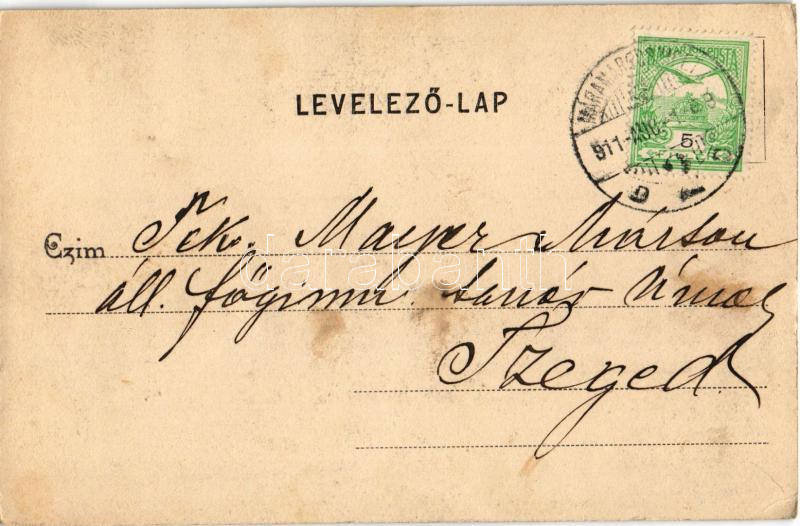 MAGYAR KIR. POSTA
5
LEVELEZŐ-LAP
911
D
Czim Tek. Mayer Márton
áll. főgimn. tanár Úrnak
darabanth
Szeged